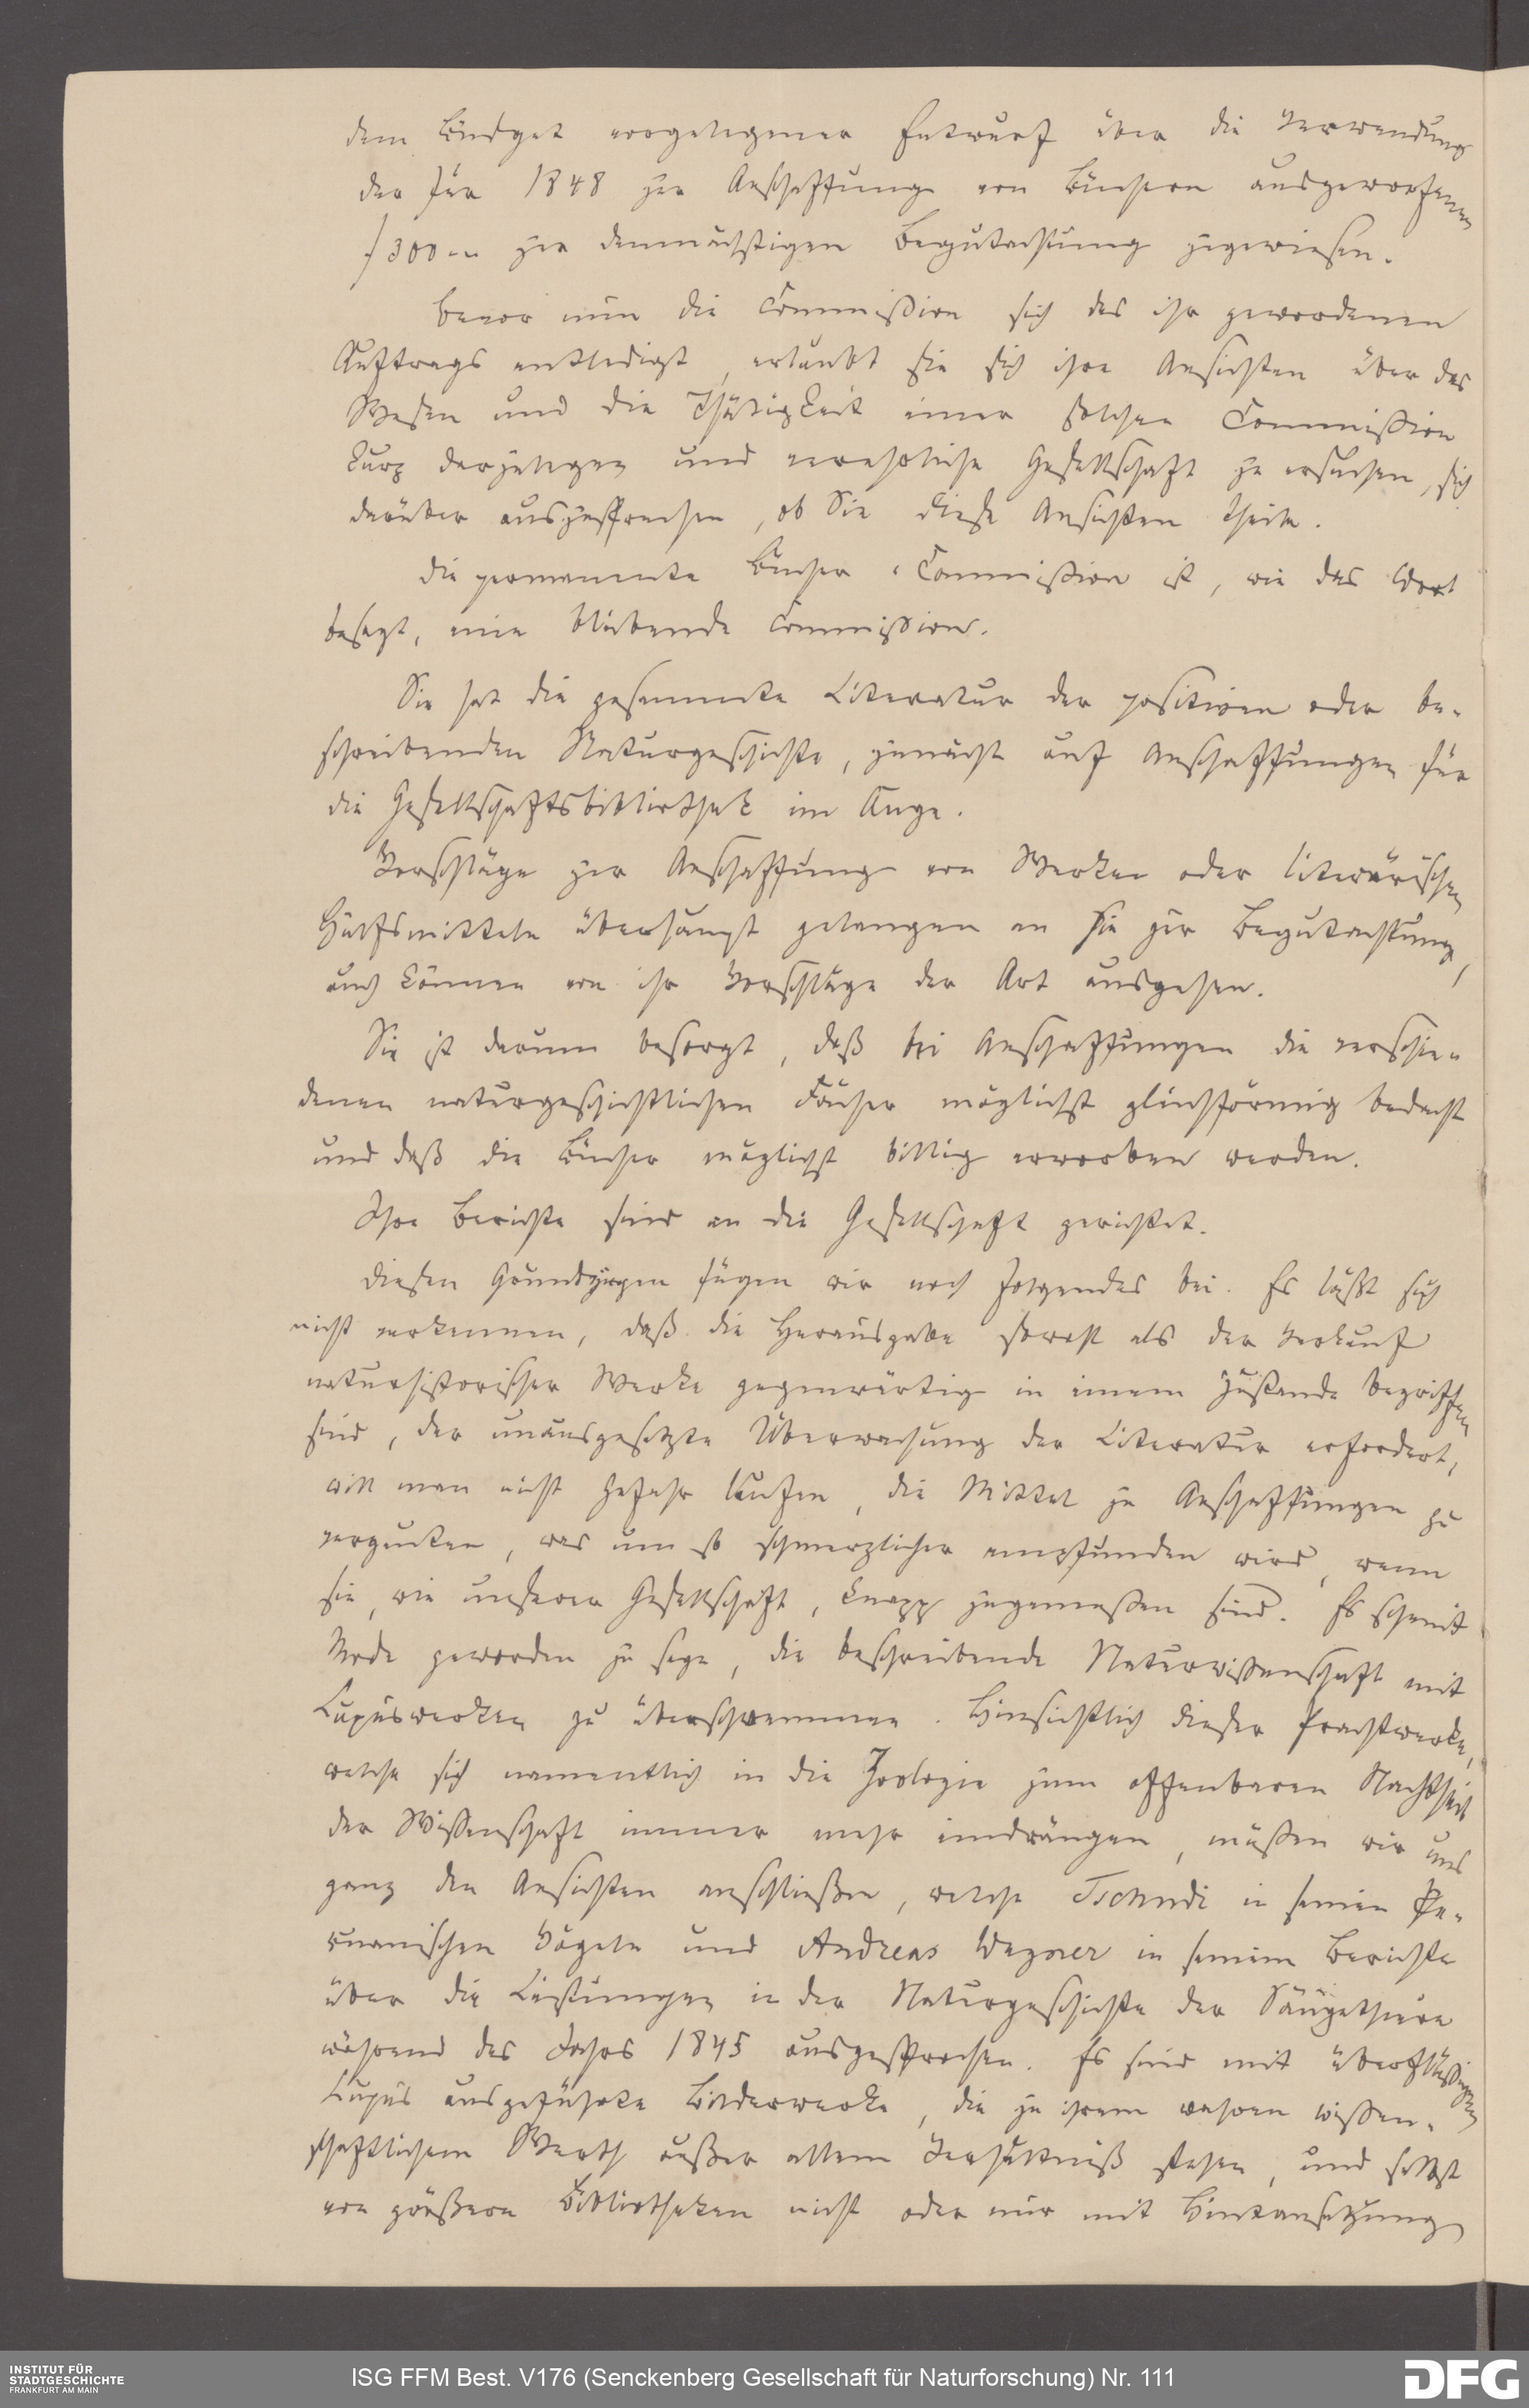 dem Budget vorgelegener Entwurf über die Verwendung
der für 1848 zur Anschaffung von Büchern ausgeworfenen
f 300 „ zur demnächstigen Begutachtung zugewiesen.
Bevor nun die Commißion sich des ihr gewordenen
Auftrags entledigt, erlaubt sie sich ihre Ansichten über das
Wesen und die Thätigkeit einer solchen Commißion
kurz darzulegen und verehrliche Gesellschaft zu ersuchen, sich
darüber auszusprechen, ob Sie diese Ansichten theile.
Die permanente Bücher-Commißion ist, wie das Wort
besagt, eine bleibende Commißion.
Sie hat die gesammte Literatur der positiven oder be-
schreibenden Naturgeschichte, zunächst auf Anschaffungen für
die Gesellschaftsbibliothek im Auge.
Vorschläge zur Anschaffung von Werken oder literärischen
Hülfsmitteln überhaupt gelangen an sie zur Begutachtung,
auch können von ihr Vorschläge der Art ausgehen.
Sie ist darum besorgt, daß bei Anschaffungen die verschie-
denen naturgeschichtlichen Fächer möglichst gleichförmig bedacht
und daß die Bücher möglichst billig erworben werden.
Ihre Berichte sind an die Gesellschaft gerichtet.
Diesen Grundzügen fügen wir noch folgendes bei. Es läßt sich
nicht verkennen, daß die Herausgabe sowohl als der Verkauf
naturhistorischer Werke gegenwärtig in einem Zustande begriffen
sind, der unausgesetzte Überwachung der Literatur erfordert,
will man nicht Gefahr laufen, die Mittel zu Anschaffungen zu
vergeuden, was um so schmerzlicher empfunden wird, wenn
sie, wie unserer Gesellschaft, knapp zugemeßen sind. Es scheint
Mode geworden zu seyn, die beschreibende Naturwißenschaft mit
Luxuswerken zu überschwemmen. Hinsichtlich dieser Prachtwerke,
welche sich namentlich in die Zoologie zum offenbaren Nachtheil
der Wißenschaft immer mehr eindrängen, müßen wir uns
ganz den Ansichten anschließen, welche Tschudi in seinen Pe-
ruanischen Vögeln und Andreas Wagner in seinem Berichte
über die Leistungen in der Naturgeschichte der Säugethiere
während des Jahrs 1845 aussprechen. Es sind mit überflüßigem
Luxus ausgeführte Bilderwerke, die zu ihrem wahren wißen-
schaftlichem Werth außer allem Verhältniß stehen, und selbst
von größern Bibliotheken nicht oder nur mit Hintansetzung
INSTITUT FÜR
STADTGESCHICHTE
FRANKFURT AM MAIN
ISG FFM Best. V176 (Senckenberg Gesellschaft für Naturforschung) Nr. 111
DFG